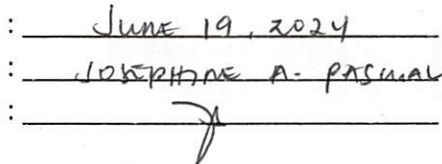 : JUNE 19, 2024
: JOSEPHINE A. PASCUAL
: